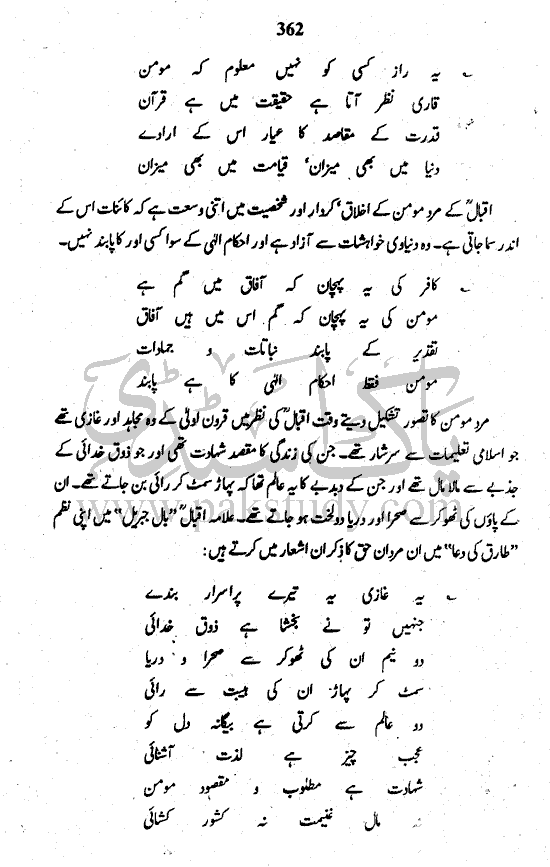 362
؎ یہ راز کسی کو نہیں معلوم کہ مومن
قاری نظر آتا ہے حقیقت میں ہے قرآن
قدرت کے مقاصد کا عیار اس کے ارادے
دنیا میں بھی میزان‘ قیامت میں بھی میزان
اقبالؒ کے مرد مومن کے اخلاق‘ کردار اور شخصیت میں اتنی وسعت ہے کہ کائنات اس کے
اندر سما جاتی ہے۔ وہ دنیاوی خواہشات سے آزاد ہے اور احکام الٰہی کے سوا کسی اور کا پابند نہیں۔
؎ کافر کی یہ پہچان کہ آفاق میں گم ہے
مومن کی یہ پہچان کہ گم اس میں ہیں آفاق
تقدیر کے پابند نباتات و جمادات
مومن فقط احکام الٰہی کا ہے پابند
مرد مومن کا تصور تشکیل دیتے وقت اقبالؒ کی نظر میں قرون اولیٰ کے وہ مجاہد اور غازی تھے
جو اسلامی تعلیمات سے سرشار تھے۔ جن کی زندگی کا مقصد شہادت تھی اور جو ذوق خدائی کے
جذبے سے مالا مال تھے اور جن کے دبدبے کا یہ عالم تھا کہ پہاڑ سمٹ کر رائی بن جاتے تھے۔ ان
کے پاؤں کی ٹھوکر سے صحرا اور دریا دولخت ہو جاتے تھے۔ علامہ اقبالؒ ”بال جبریل“ میں اپنی نظم
”طارق کی دعا“ میں ان مردان حق کا ذکر ان اشعار میں کرتے ہیں:
؎ یہ غازی یہ تیرے پراسرار بندے
جنہیں تو نے بخشا ہے ذوق خدائی
دو نیم ان کی ٹھوکر سے صحرا و دریا
سمٹ کر پہاڑ ان کی ہیبت سے رائی
دو عالم سے کرتی ہے بیگانہ دل کو
عجب چیز ہے لذت آشنائی
شہادت ہے مطلوب و مقصود مومن
نہ مال غنیمت نہ کشور کشائی
پاک سٹڈی
www.pakstudy.com